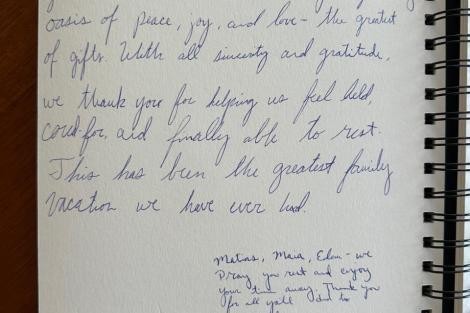 oasis of peace, joy, and love - the greatest
of gifts. With all sincerity and gratitude,
we thank you for helping us feel held,
cared-for, and finally able to rest.
This has been the greatest family
vacation we have ever had.
Matias, Maia, Eden - we
pray you rest and enjoy
your time away. Thank you
for all y'all do to